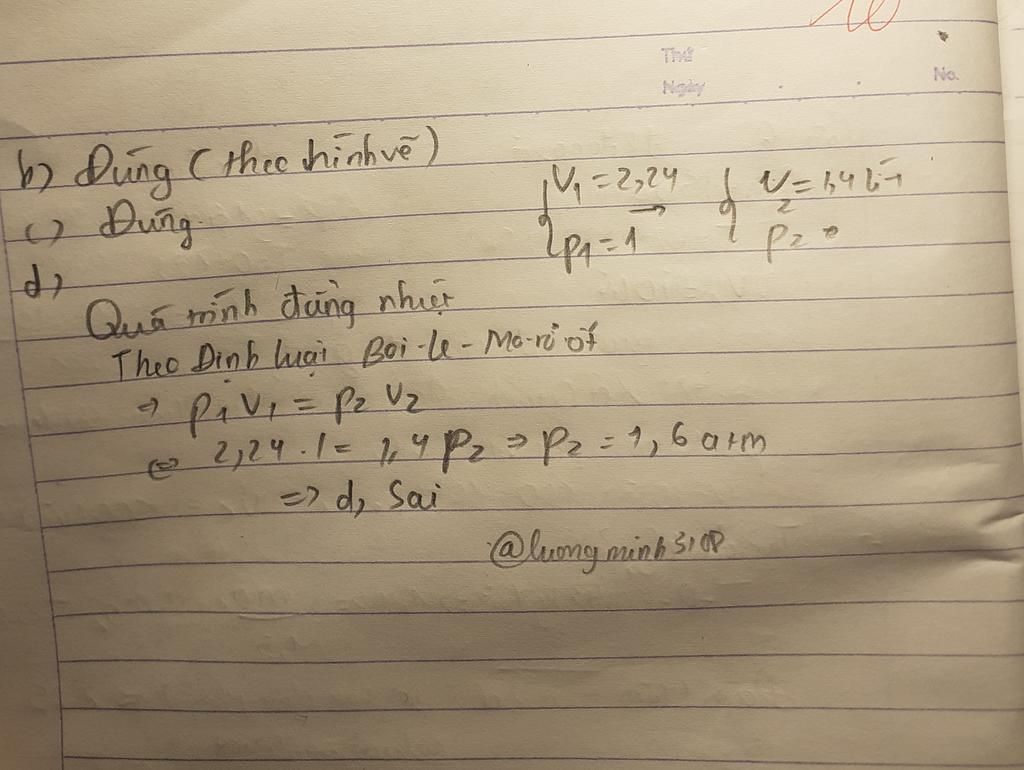 Thứ
Ngày
No.
10
b) Đúng (theo hình vẽ)
c) Đúng.
V₁ = 2,24 → V₂ = 1,4 lít
p₁ = 1 p₂ =
d)
Quá trình đẳng nhiệt
Theo Định luật Bôi-lơ-Ma-ri ốt
⇒ p₁ V₁ = p₂ V₂
⇔ 2,24 . 1 = 1,4 p₂ ⇒ p₂ = 1,6 atm
⇒ d, Sai
@luongminh3108